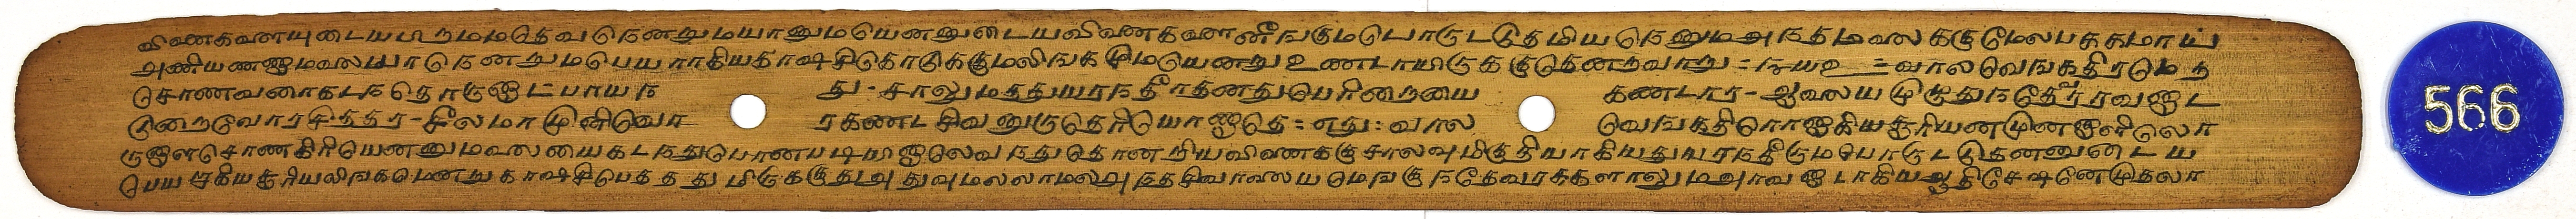 வினைகளையுடையபிறமமதெவநென்றுமயானுமயென்னுடையவிணைகளைனீஙகுமபொருட்டுதமியநெனுமஅநதமலைக்குமேலபக்கமாய
அணியணணாமலையாநென்றுமபெயராகியகாஷசிகொடுக்குமலிஙகமுமயென்று உண்டாயிருக்குதென்றவாறு = ௩௰௨ = வாலவெஙகதிரமே
சொணவரைகடநதொருஞட்பாயந து - சாலுமத்துயரநதீரத்னதுபெரிறையை கண்டார - ஆலையமுமுதுநதேரரவஞட
முறைவோரசித்தர - சீலமாமுனிவோ ரகண்ட சிவனுருதெரியொஞதெ = எது: வால வெஙகதிரொஞகியசூரியனமுனனுளிலொ
ருநாளசொணகிரியெனனுமலையைகடநதுபொனபடியிஞலெவநதுதொன்றியவிணைக்குசாலவுமிகுதியாகியதுயரநதீருமபொருட்டுதன்னுடைய
பெய ரகியசூரியலிஙகமென்றுகாஷசிபெத்தது மிருக்குதஅதுவுமல்லாமலஅநதசிவாலையமெஙகுநதேவரக்களாலுமஅரவஞடாகியஆதிசேஷனேமுதலா
566